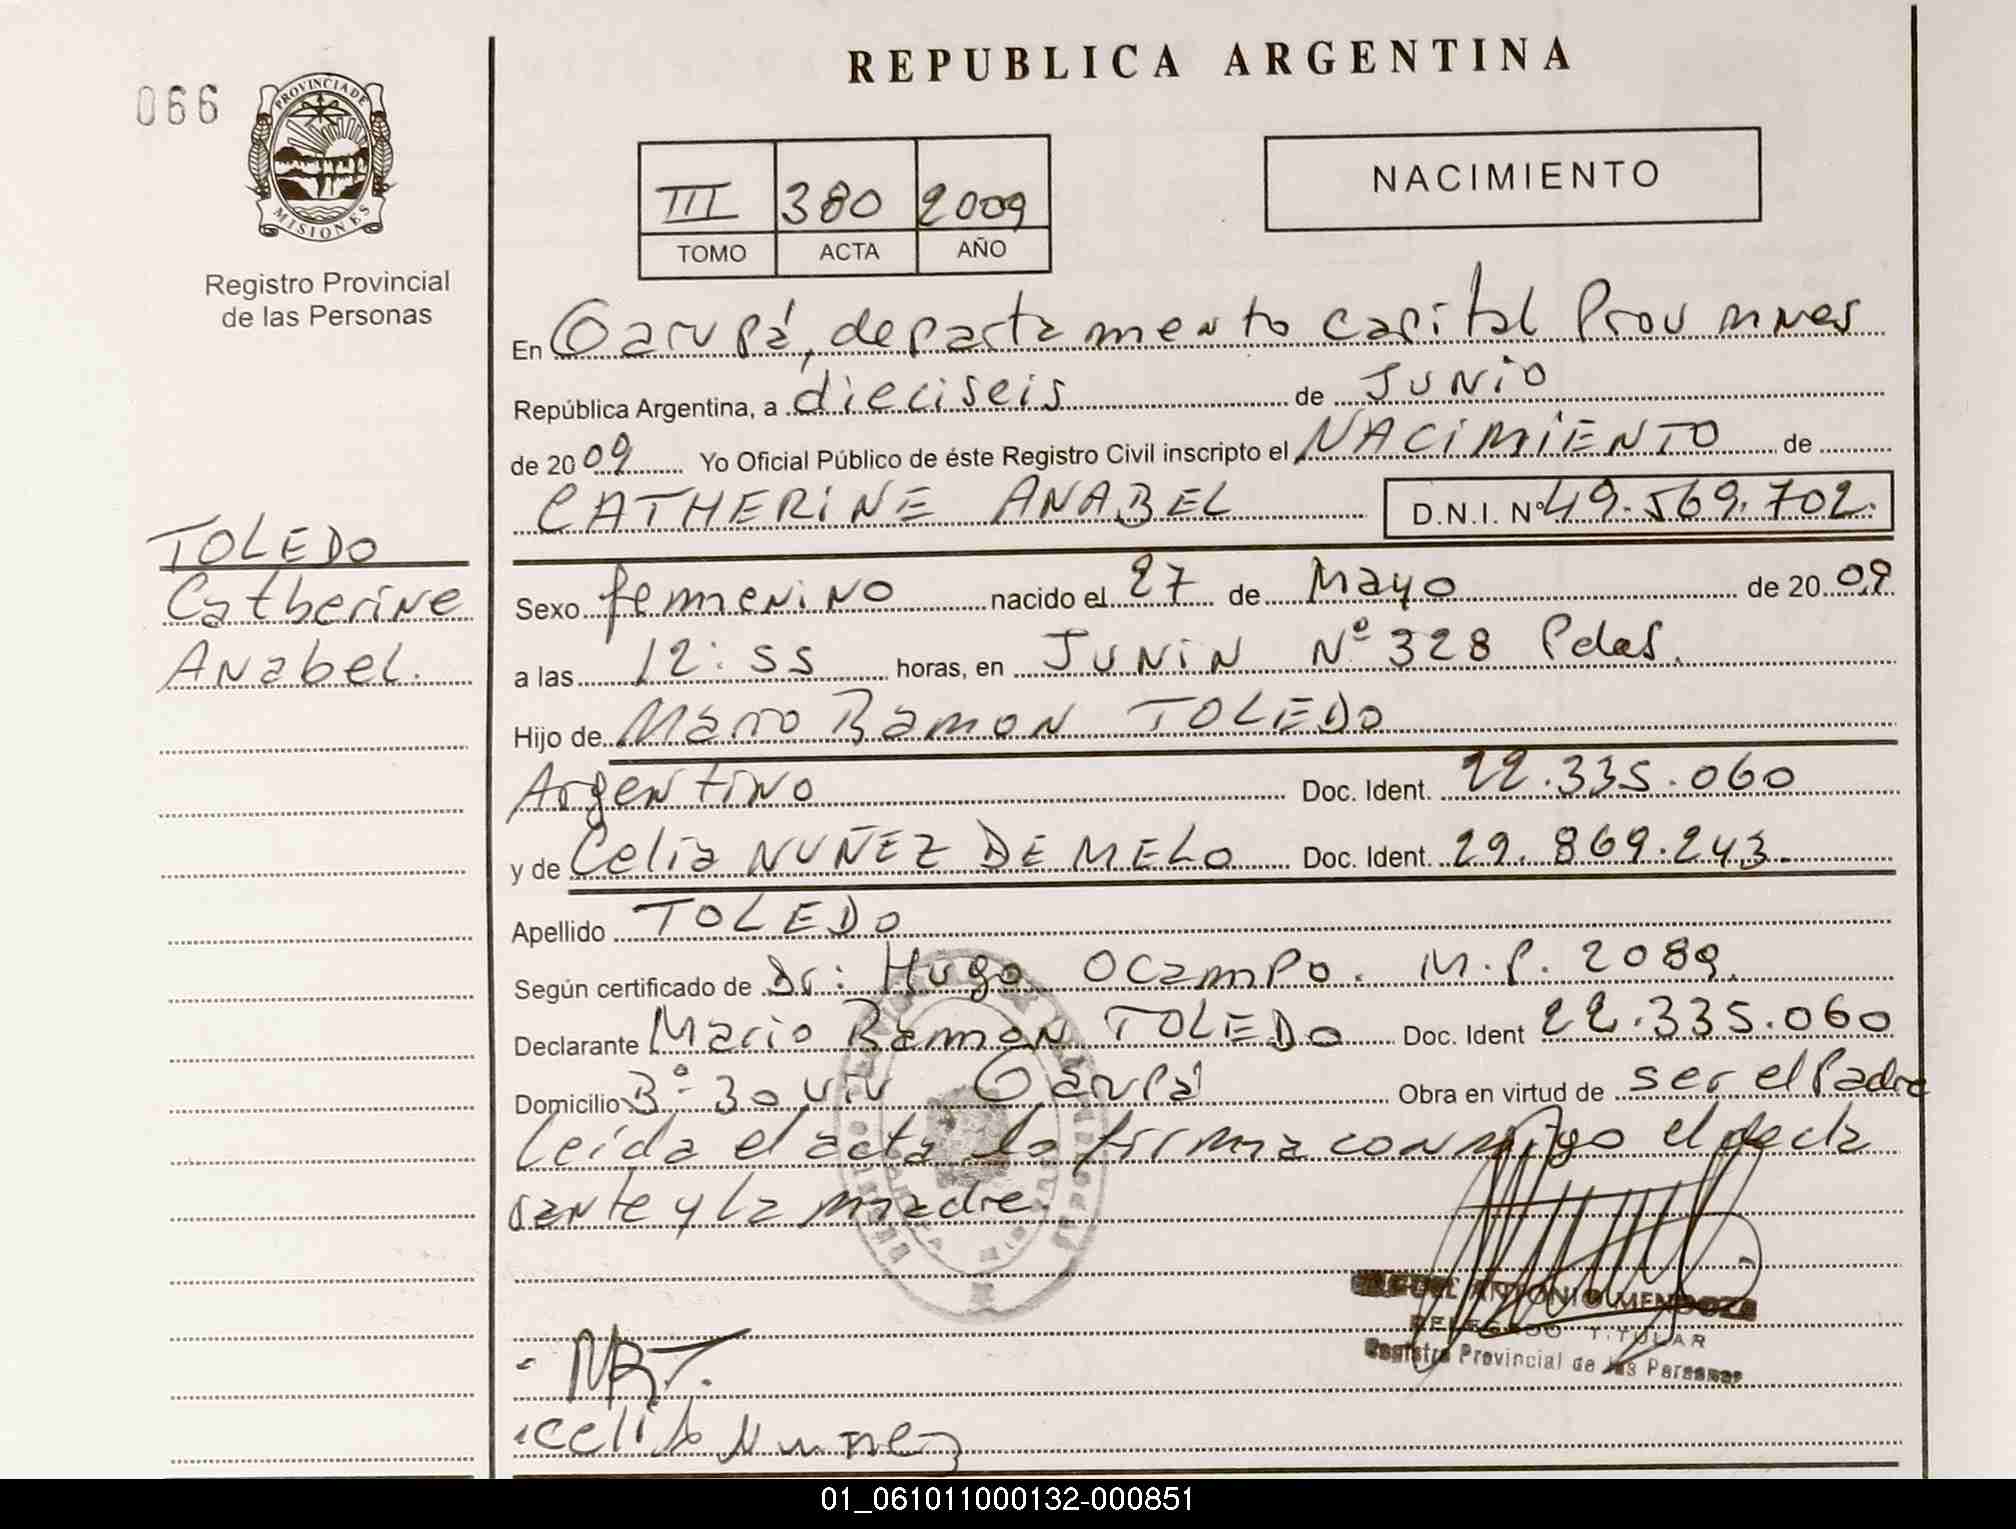 REPUBLICA ARGENTINA
066
PROVINCIA DE
MISIONES
Registro Provincial
de las Personas
III 380 2009
TOMO ACTA AÑO
NACIMIENTO
En Garupá, departamento capital Prov mnes
República Argentina, a dieciseis de Junio
de 2009 Yo Oficial Público de éste Registro Civil inscripto el NACIMIENTO de
CATHERINE ANABEL D.N.I. Nº 49.569.702.
TOLEDO
Catherine
Anabel.
Sexo femenino nacido el 27 de Mayo de 2009
a las 12:55 horas, en JUNIN Nº 328 Pdas.
Hijo de Mario Ramon TOLEDO
Argentino Doc. Ident. 22.335.060
y de Celia NUÑEZ DE MELO Doc. Ident. 29.869.243.
Apellido TOLEDO
Según certificado de Dr: Hugo Ocampo. M.P. 2089.
Declarante Mario Ramon TOLEDO Doc. Ident 22.335.060
Domicilio Bº 30 viv Garupá Obra en virtud de ser el Padre
Leida el acta la firma conmigo el decla
rante y la madre.
ANTONIO MENDOZA
DELEGADO TITULAR
Registro Provincial de las Personas
MRT.
celia Nunez
01_061011000132-000851